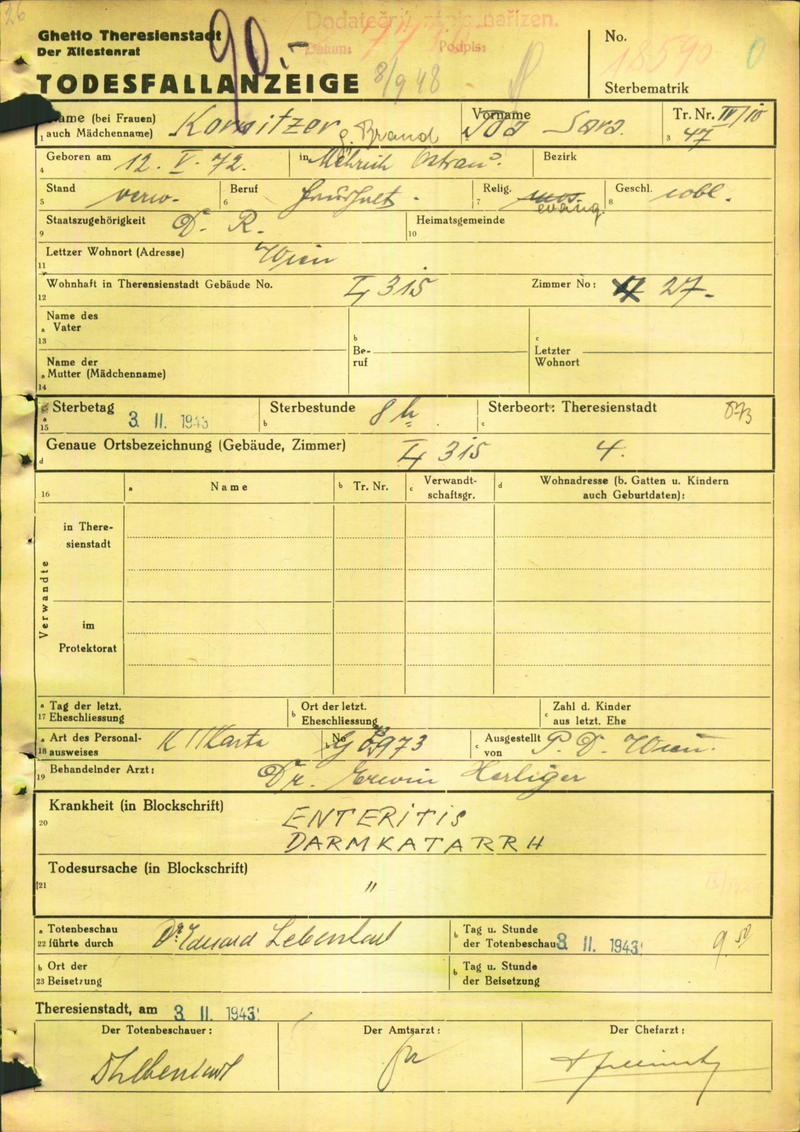 26
Ghetto Theresienstadt
Der Ältestenrat
TODESFALLANZEIGE
90.-
Dodatečný zápis nařízen.
Datum: Podpis:
8/9 48
No.
18590
Sterbematrik
Name (bei Frauen) auch Mädchenname) Kornitzer g. Brand Vorname Ida Sara. Tr. Nr. IV/10 47
Geboren am 12. V. 72. in Mährisch Ostrau Bezirk
Stand verw. Beruf Haushalt. Relig. mos. evang. Geschl. weibl.
Staatszugehörigkeit D. R. Heimatsgemeinde
Letzter Wohnort (Adresse) Wien
Wohnhaft in Theresienstadt Gebäude No. L 315 Zimmer No: 27.
Name des Vater
Beruf
Letzter Wohnort
Name der Mutter (Mädchenname)
Sterbetag 3. II. 1943 Sterbestunde 8 h Sterbeort: Theresienstadt
Genaue Ortsbezeichnung (Gebäude, Zimmer) L 315 4.
16 a Name b Tr. Nr. c Verwandtschaftsgr. d Wohnadresse (b. Gatten u. Kindern auch Geburtdaten):
Verwandte
in Theresienstadt
im Protektorat
a Tag der letzt. 17 Eheschliessung b Ort der letzt. Eheschliessung c Zahl d. Kinder aus letzt. Ehe
a Art des Personal- 18 ausweises K Karte No c Ausgestellt von P. D. Wien.
19 Behandelnder Arzt: Dr. Erwin
Krankheit (in Blockschrift) ENTERITIS
20 DARMKATARRH
Todesursache (in Blockschrift)
21 "
a Totenbeschau 22 führte durch Dr Eduard b Tag u. Stunde der Totenbeschau 3. II. 1943
b Ort der 23 Beisetzung b Tag u. Stunde der Beisetzung
Theresienstadt, am 3. II. 1943
Der Totenbeschauer: Der Amtsarzt: Der Chefarzt: